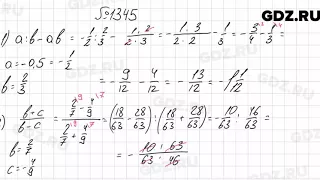 №1345
GDZ.RU
1) a:b - ab = -1/2 : 2/3 - 1·2/2·3 = -1·3/2·2 - 1/3 = -3/4 - 1/3 =
a = -0,5 = -1/2
b = 2/3
= -9/12 - 4/12 = -13/12 = -1 1/12
b+c/b-c = 2/7 - 4/9 / 2/7 + 4/9 = (18/63 - 28/63) : (18/63 + 28/63) = -10/63 : 46/63 =
b = 2/7
c = -4/9
= - 10·63/63·46
GDZ.RU